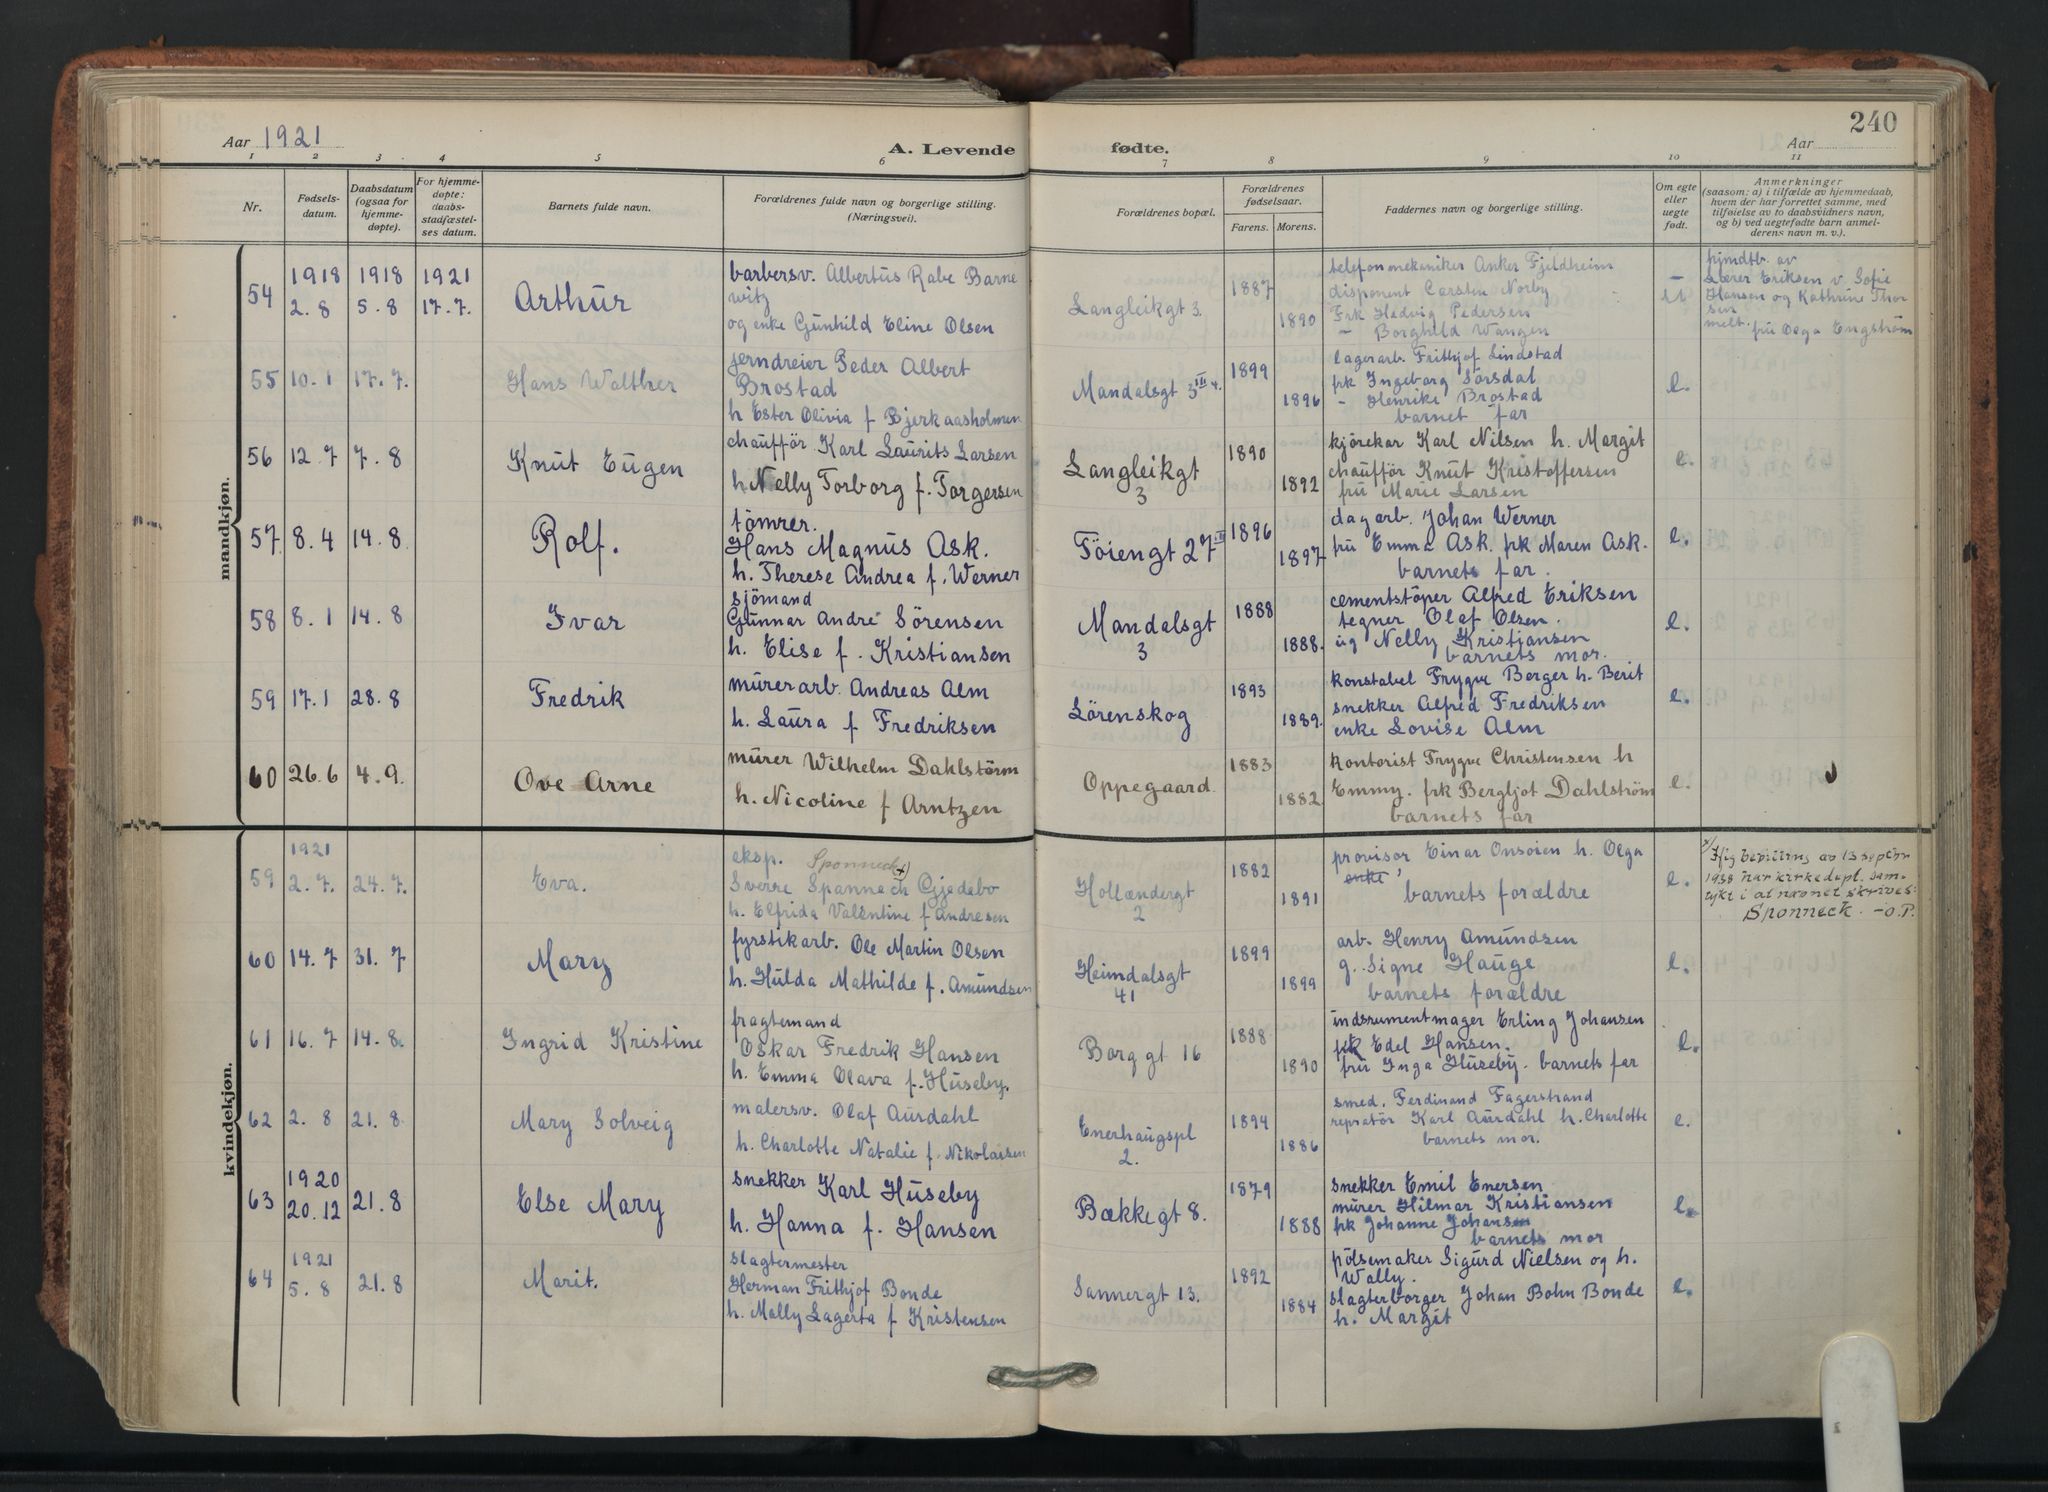 240
Aar 1921
A. Levende fødte.
Aar
1 2 3 4 5 6 7 8 9 10 11
Nr.
Fødsels-
datum.
Daabsdatum
(ogsaa for
hjemme-
døpte).
For hjemme-
døpte:
daabs-
stadfæstel-
ses datum.
Barnets fulde navn.
Forældrenes fulde navn og borgerlige stilling.
(Næringsvei).
Forældrenes bopæl.
Forældrenes
fødselsaar.
Farens. Morens.
Faddernes navn og borgerlige stilling.
Om egte
eller
uegte
født.
Anmerkninger
(saasom: a) i tilfælde av hjemmedaab,
hvem der har forrettet samme, med
tilføielse av to daabsvidners navn,
og b) ved uegtefødte barn anmel-
derens navn m. v.).
mandkjøn.
54
1918
2.8
1918
5.8
1921
17.7.
Arthur
barbersv. Albertus Rabe Barne
witz
og enke Gunhild Eline Olsen
Langleikgt 3.
1887
1890
telefonmekaniker Anker Fjeldheim
disponent Carsten Norby
Frk Hedvig Pedersen
- Borghild Wangen
hjmdtb. av
Lærer Eriksen v. Sofie
Hansen og Kathrine Thor
sen
melt. fru Olga Engström
55
10.1
17.7.
Hans Walther
jerndreier Peder Albert
Brostad
h Ester Olivia f Bjerkaasholmen
Mandalsgt 3 III
1899
1896
lagerarb. Frithjof Lindstad
frk Ingeborg Sörsdal
- Henrike Brostad
barnet far
e.
56
12.7
7.8
Knut Eugen
chaufför Karl Laurits Larsen
h Nelly Torborg f. Torgersen
Langleikgt
3
1890
1892
kjörekar Karl Nilsen h. Margit
chaufför Knut Kristoffersen
fru Marie Larsen
e.
57
8.4
14.8
Rolf.
tömrer.
Hans Magnus Ask.
h. Therese Andrea f. Werner
Töiengt 27 III
1896
1897
dagarb. Johan Werner
fru Emma Ask. frk Maren Ask.
barnets far.
e.
58
8.1
14.8
Ivar
sjömand
Gunnar André Sörensen
h. Elise f. Kristiansen
Mandalsgt
3
1888
1888.
cementstöper Alfred Eriksen
tegner Olaf Olsen.
ug Nelly Kristiansen
barnets mor.
e.
59
17.1
28.8
Fredrik
murerarb. Andreas Alm
h. Laura f Fredriksen
Lörenskog
1893
1889.
konstabel Trygve Berger h. Berit
snekker Alfred Fredriksen
enke Lovise Alm
e.
60
26.6
4.9.
Ove Arne
murer Wilhelm Dahlström
h. Nicoline f Arntzen
Oppegaard
1883
1882
kontorist Trygve Christensen h
Emmy. frk Bergljot Dahlström
barnets far
e.
kvindekjøn.
59
1921
2.7.
24.7.
Eva.
eksp. Sponneck x)
Sverre Spannech Gjedebo
h. Elfrida Valentine f Andresen
Hollændergt
2
1882
1891
provisor Einar Onsoien h. Olga
enke
barnets forældre
e.
x/ Ifig bevilling av 13 septbr
1938 har kirkedept. sam-
tykt i at navnet skrives:
Sponneck. - O.P.
60
14.7
31.7
Mary
fyrstikarb. Ole Martin Olsen
h. Hulda Mathilde f. Amundsen
Heimdalsgt
41
1899
1899
arb. Henry Amundsen
g. Signe Hauge
barnets forældre
e.
61
16.7
14.8.
Ingrid Kristine
fragtemand
Oskar Fredrik Hansen
h. Emma Olava f. Huseby.
Borggt 16
1888
1890
indsrumentmager Erling Johansen
frk Edel Hansen.
fru Inga Huseby. barnets far
e.
62
2.8
21.8
Mary Solveig
malersv. Olaf Aurdahl
h. Charlotte Natalie f. Nikolaisen
Enerhaugspl
2.
1894
1886
smed. Ferdinand Fagerstrand
repratör Karl Aurdahl h. Charlotte
barnets mor.
e.
63
1920
20.12
21.8
Else Mary
snekker Karl Huseby
h. Hanna f. Hansen
Bækkegt 8.
1879
1888
snekker Emil Enersen
murer Hilmar Kristiansen
frk Johanne Johansen
barnets mor
e.
64
1921
5.8
21.8
Marit.
slagtermester
Herman Frithjof Bonde
h. Mally Lagerta f Kristensen
Sannergt 13.
1892
1884
pölsemaker Sigurd Nielsen og h.
Wally.
slagterborger Johan Bohn Bonde
h. Margit
e.